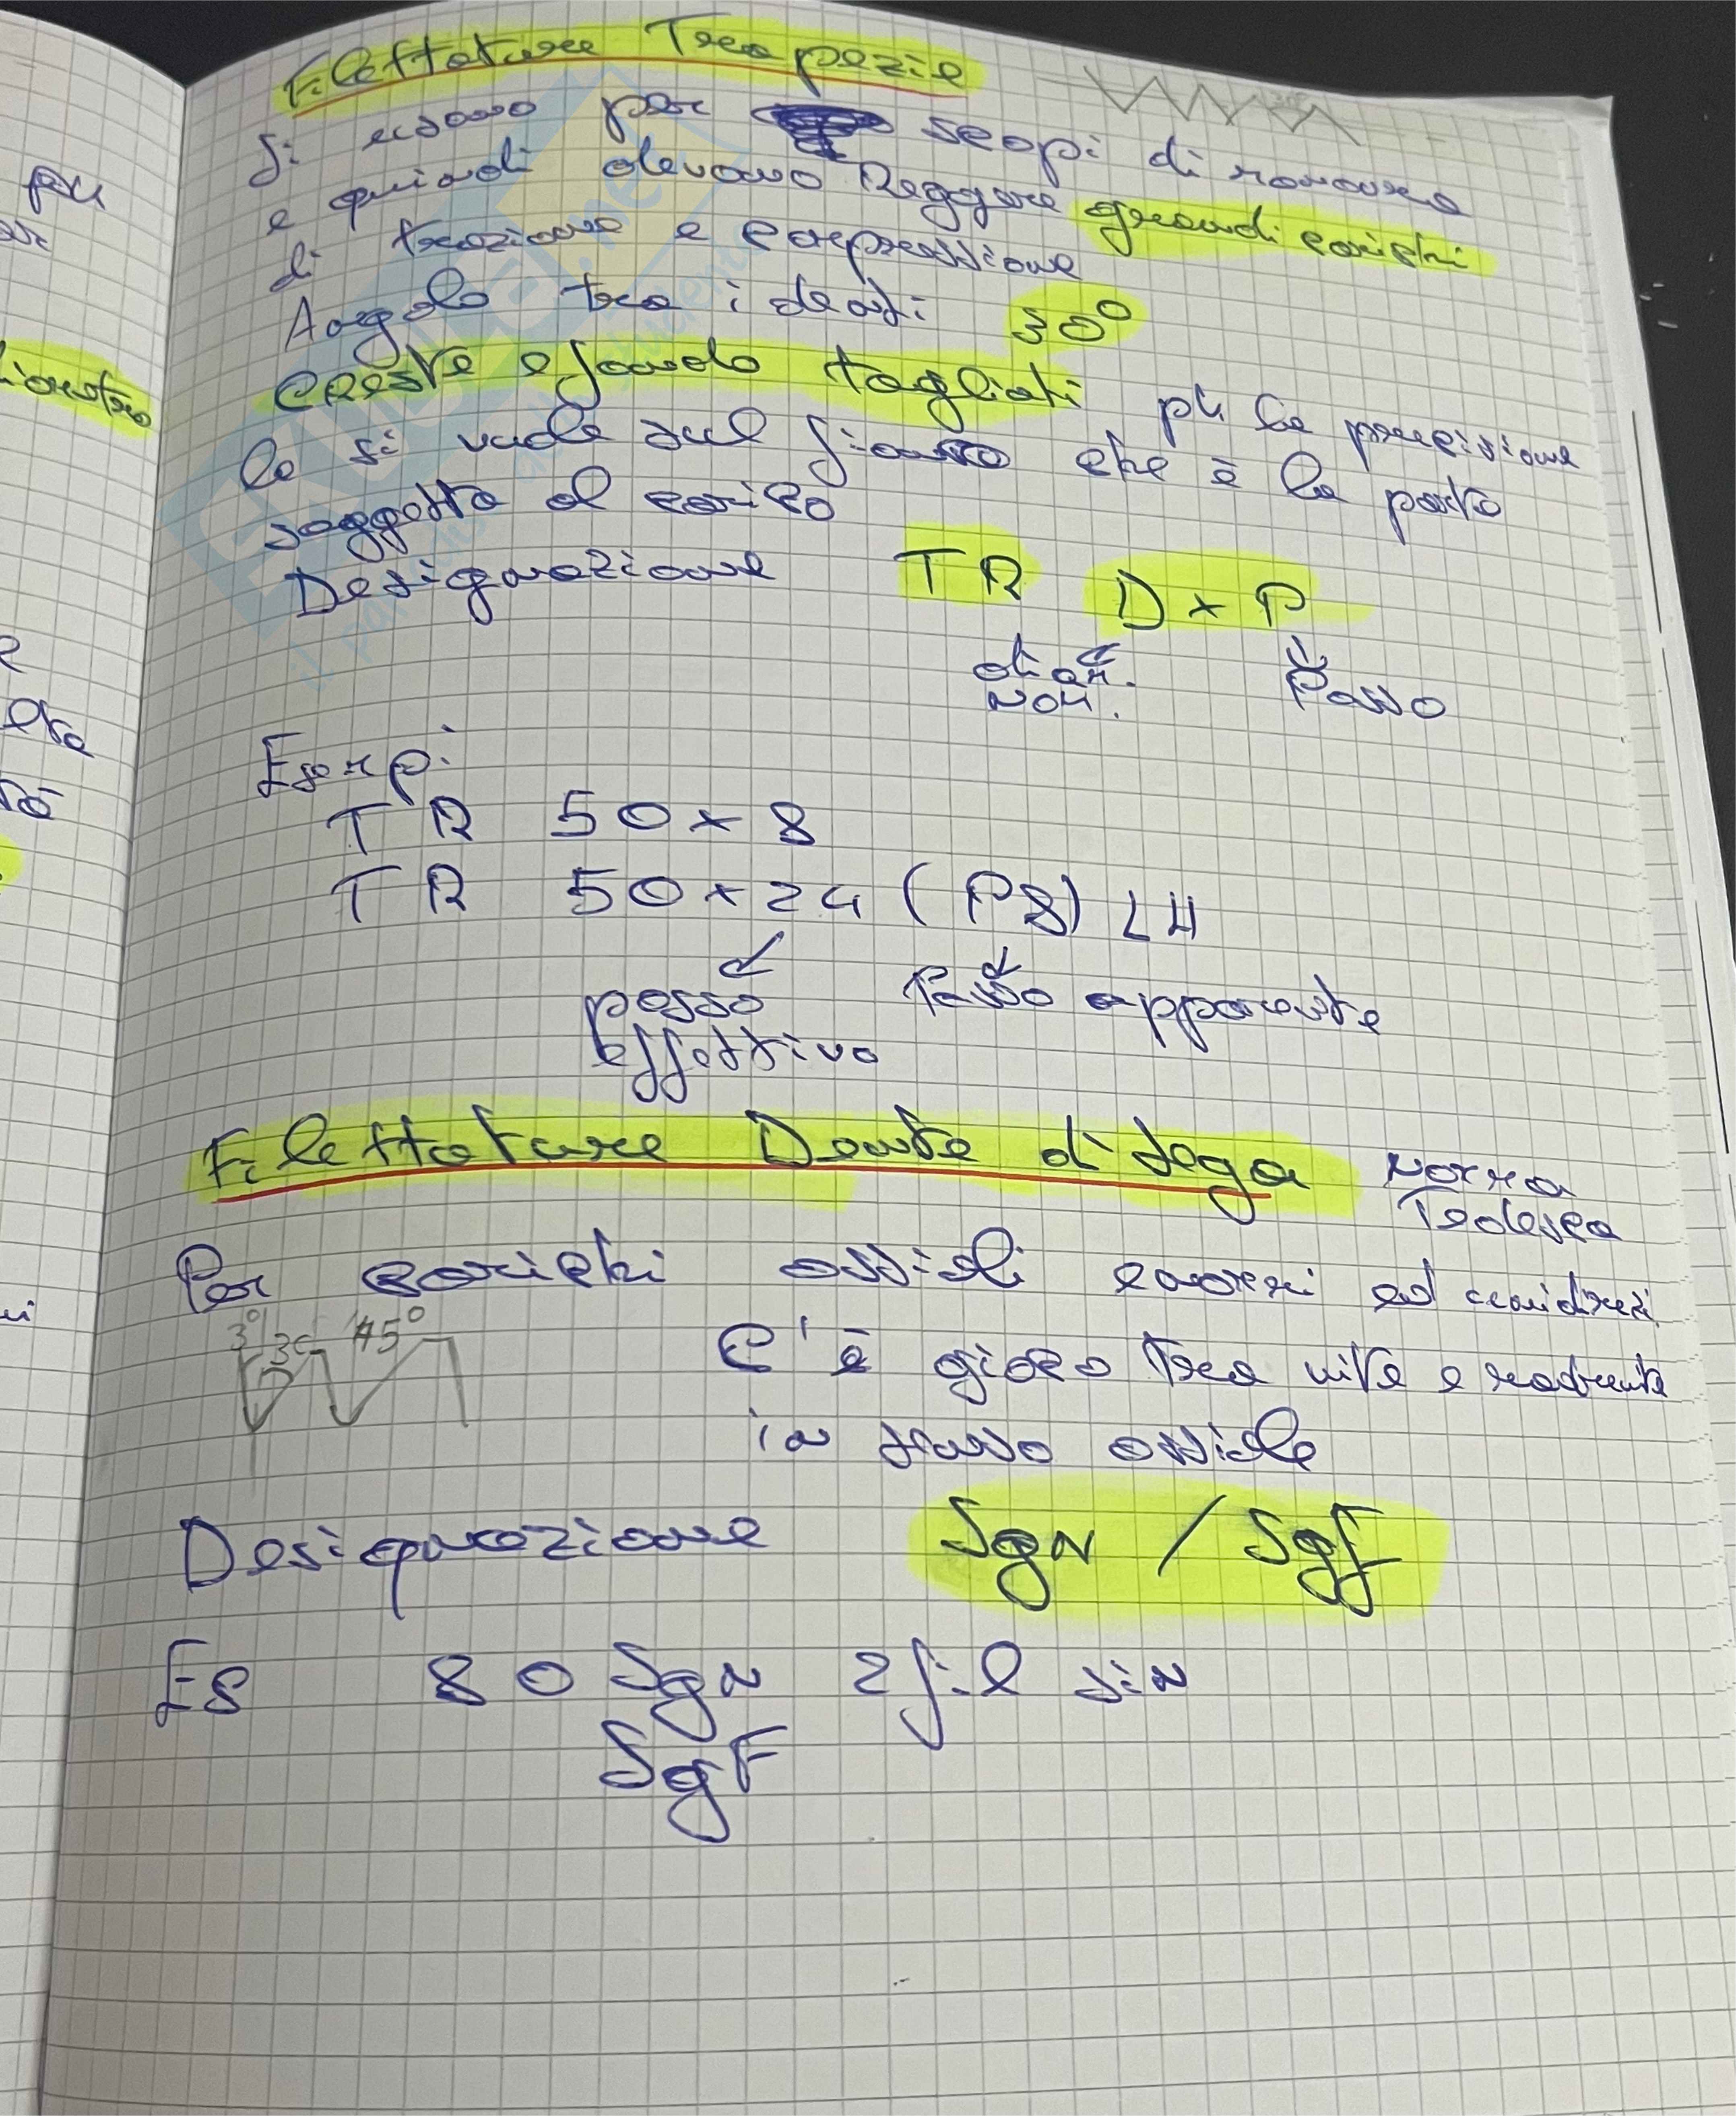 Filettature Trapezie
Si usano per scopi di manovra
e quindi devono Reggere grandi carichi
di trazione e compressione
Angolo tra i denti 30°
Creste e fondo tagliati più la precisione
la si vuole sul fianco che è la parte
soggetta al carico
Designazione TR D x P
diam. Passo
nom.
Esempi
TR 50 x 8
TR 50 x 24 (P8) LH
passo Passo apparente
effettivo
Filettature Dente di Sega Norma
Tedesca
Per carichi assiali enormi ed unidirez.
3° 30 45°
C'è gioco tra vite e madrevite
in senso assiale
Designazione SgN / Sgf
Es 80 SgN 2 fil sin
SgF
più